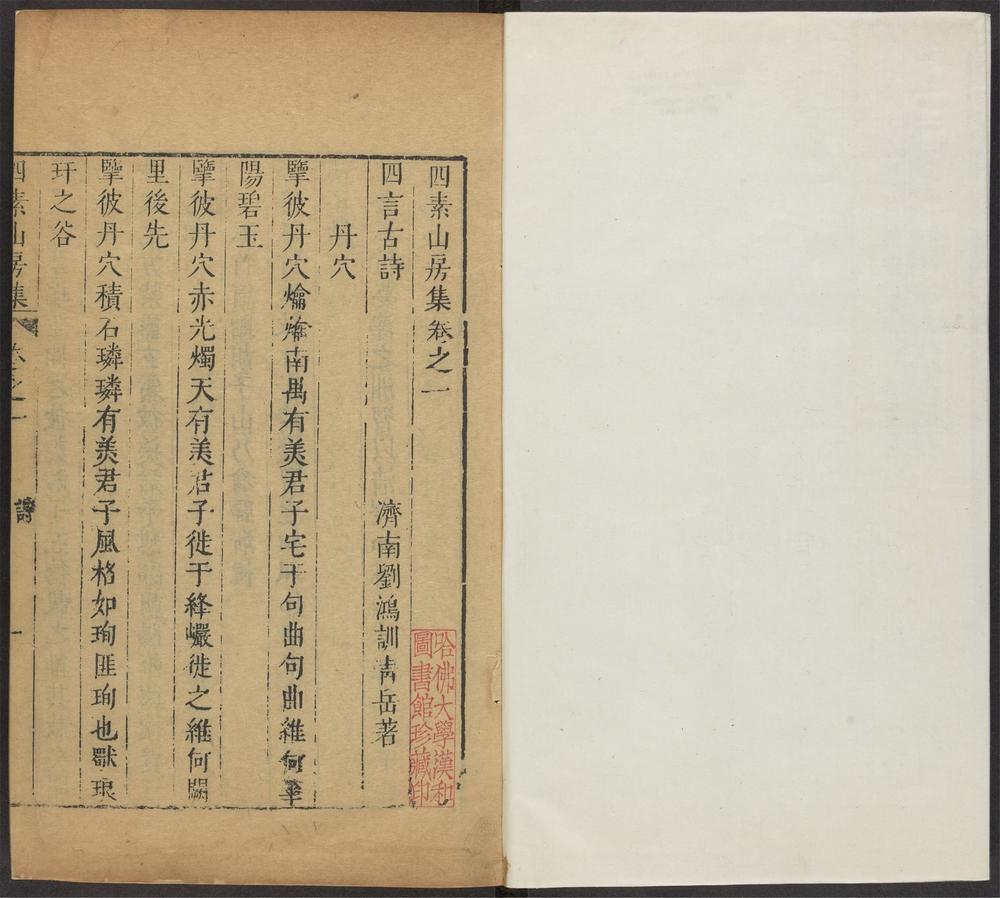 四素山房集卷之一
四言古詩
濟南劉鴻訓青岳著
丹穴
擥彼丹穴爚爚南禺有美君子宅于句曲句曲維何華
陽碧玉
擥彼丹穴赤光燭天有美君子徙于絳巘徙之維何闕
里後先
擥彼丹穴積石璘璘有美君子風格如珣匪珣也歟琅
玕之谷
四素山房集
卷之一
詩
一
哈佛大學漢和
圖書館珍藏印